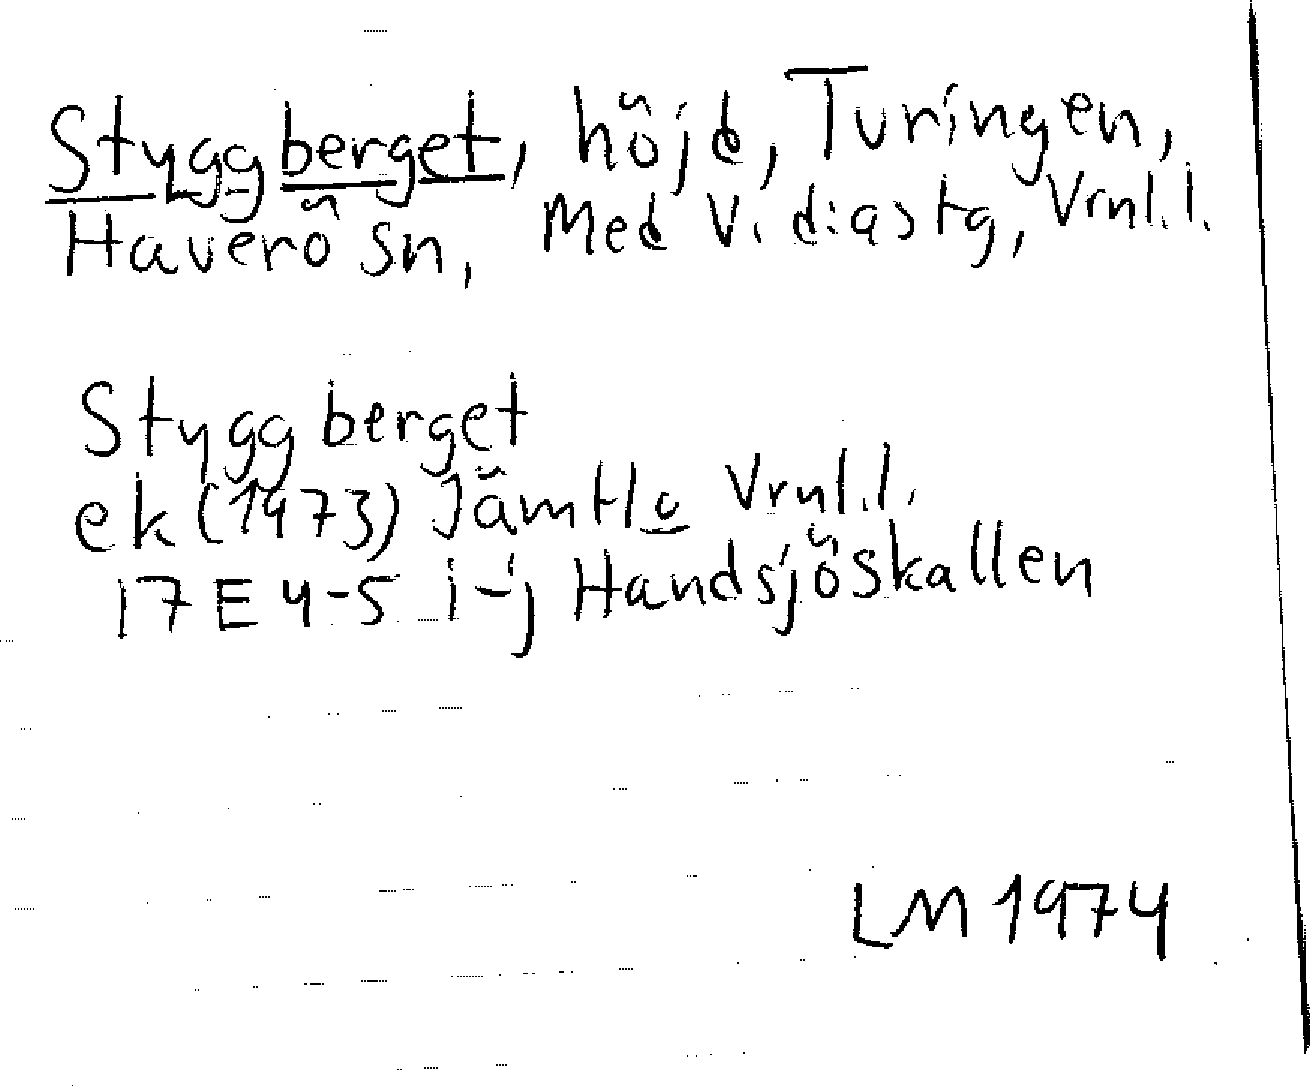 Styggberget, höjd, Turingen,
Haverö Sn, Med V. diastg, Vrnl.l.
Styggberget
ek (1973) Jämtl o Vrnl.l.
17E 4-5 i-j Handsjöskallen
LM 1974